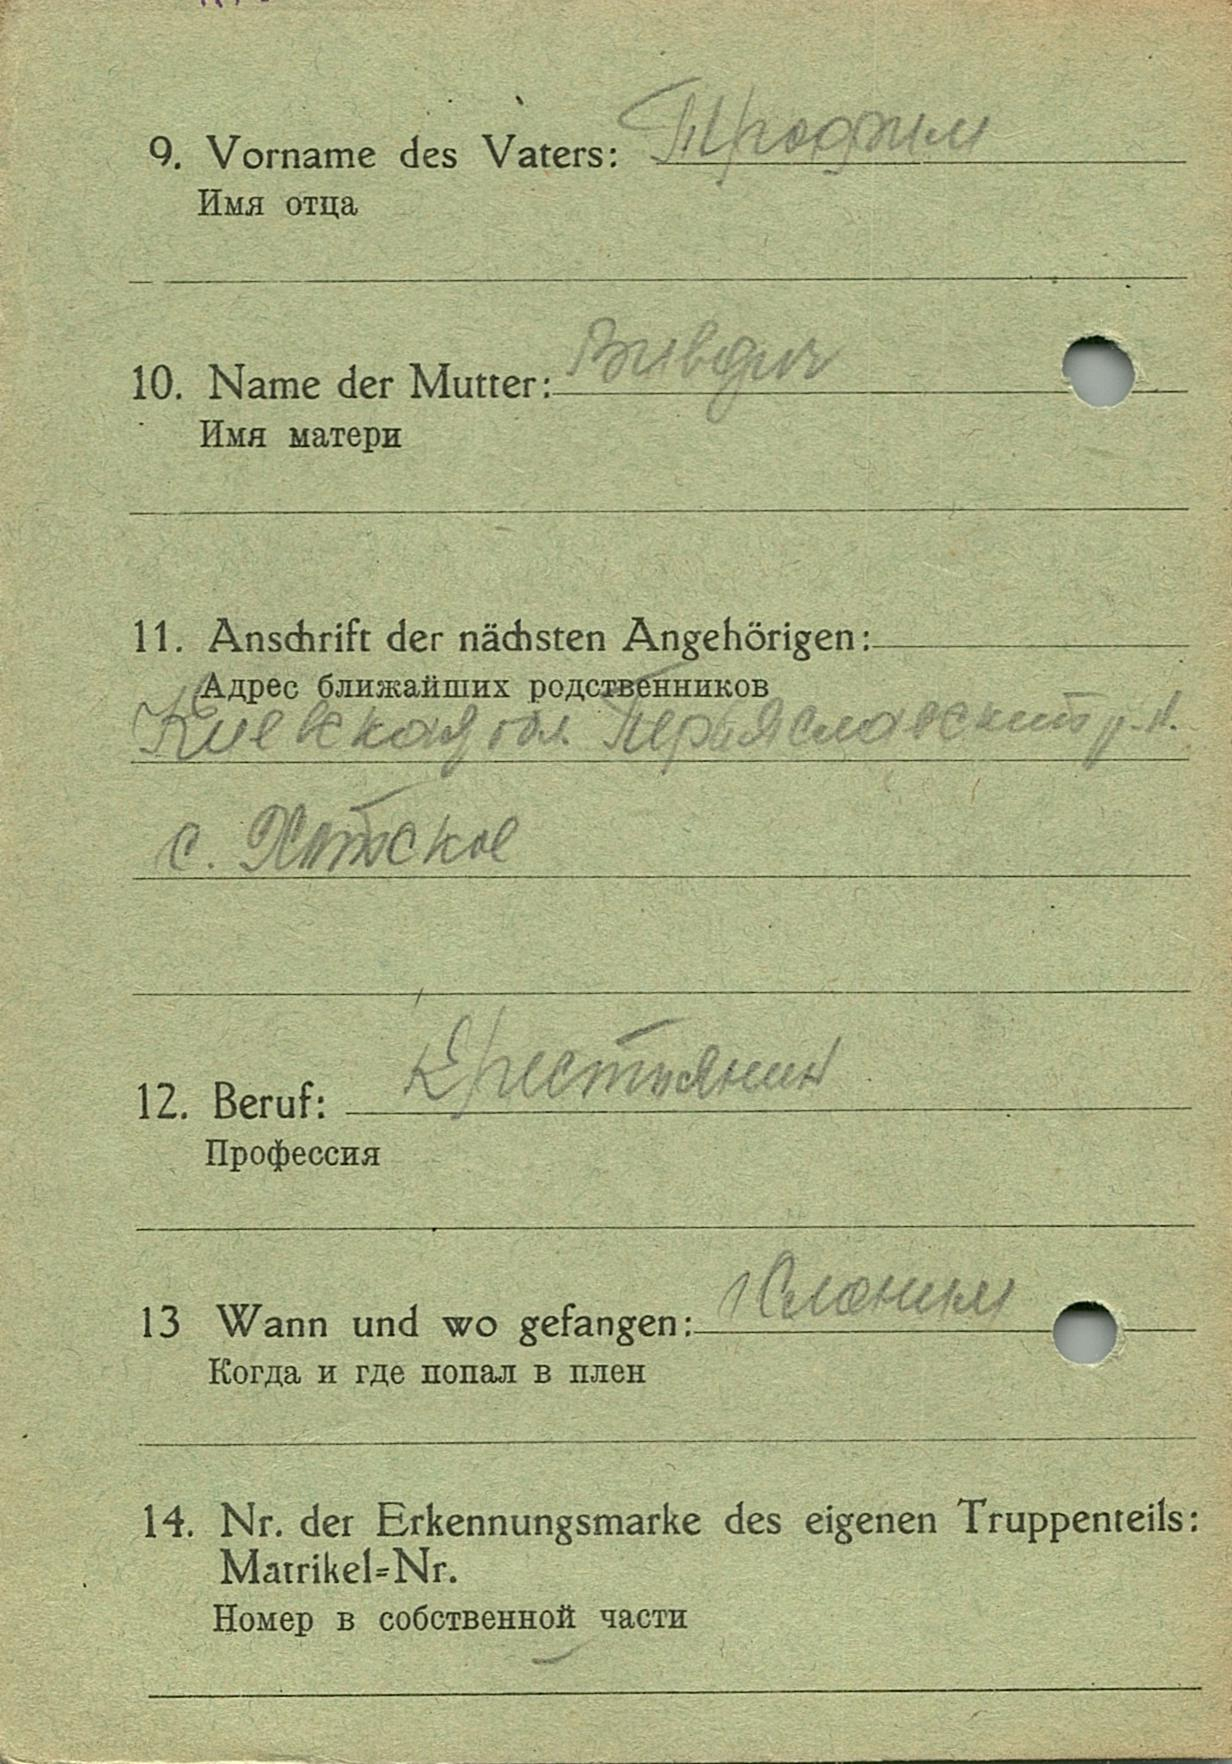 9. Vorname des Vaters: Трофим
Имя отца
10. Name der Mutter:
Имя матери
11. Anschrift der nächsten Angehörigen:
Адрес ближайших родственников
Киевская обл. Переяславский р.н.
с. Хотское
12. Beruf: Крестьянин
Профессия
13 Wann und wo gefangen: Слоним
Когда и где попал в плен
14. Nr. der Erkennungsmarke des eigenen Truppenteils:
Matrikel=Nr.
Номер в собственной части
—